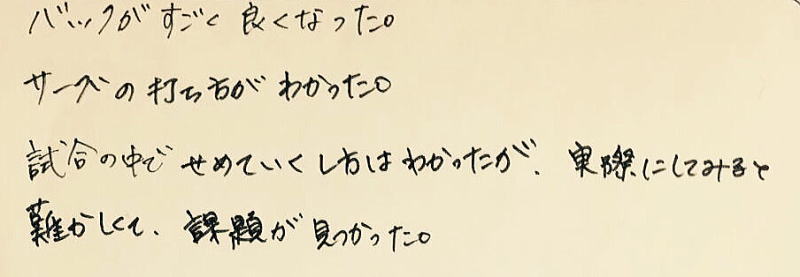 バックがすごく良くなった。
サーブの打ち方がわかった。
試合の中でせめていくし方はわかったが、実際にしてみると
難かしくて、課題が見つかった。